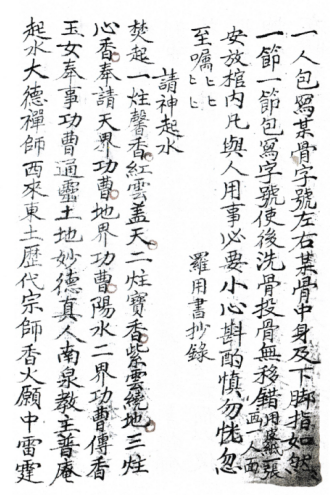 一人包寫某骨字號左右某骨中身及下脚指如然
一節一節包寫字號使後洗骨投骨無移錯用蠟張画人面
安放棺内凡與人用事必要小心斟酌慎勿恍忽
至囑匕匕匕
羅用書抄錄
請神起水
焚起一炷馨香紅雲盖天二炷寶香紫雲繞地三炷
心香奉請天界功曹地界功曹陽水二界功曹傳香
玉女奉事功曹通靈土地妙德真人南泉教主普庵
起水大德禪師西來東土歷代宗師香火願中雷霆